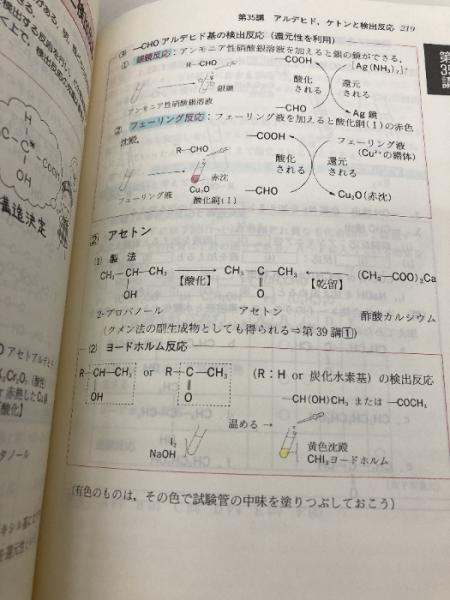 第35講 アルデヒド，ケトンと検出反応 219
第
35
講
(3) —CHO アルデヒド基の検出反応（還元性を利用）
① 銀鏡反応：アンモニア性硝酸銀溶液を加えると銀の鏡ができる。
R—CHO
銀鏡
アンモニア性硝酸銀溶液
—COOH
酸化
される
—CHO
[Ag(NH₃)₂]⁺
還元
される
Ag 鏡
② フェーリング反応：フェーリング液を加えると酸化銅(Ⅰ)の赤色
沈殿。
R—CHO
赤沈
Cu₂O
酸化銅(Ⅰ)
フェーリング液
—COOH
酸化
される
—CHO
フェーリング液
(Cu²⁺の錯体)
還元
される
Cu₂O(赤沈)
② アセトン
(1) 製法
CH₃—CH—CH₃ 【酸化】 CH₃—C—CH₃ 【乾留】 (CH₃—COO)₂Ca
OH O
2-プロパノール アセトン 酢酸カルシウム
(クメン法の副生成物としても得られる⇒第39講①)
(2) ヨードホルム反応
R—CH—CH₃ or R—C—CH₃ (R：H or 炭化水素基) の検出反応
OH O
—CH(OH)CH₃ または —COCH₃
温める →
I₂
NaOH
黄色沈殿
CHI₃ヨードホルム
(有色のものは，その色で試験管の中味を塗りつぶしておこう)
C
OH
構造決定
アセトアルデヒド
K₂Cr₂O₇ (酸性)
or 赤熱したCu
【酸化】